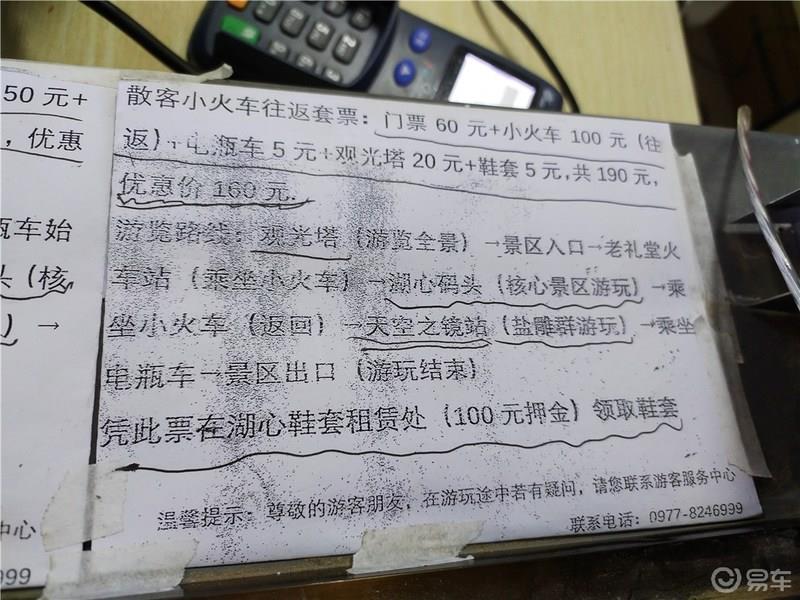 50 元+
，优惠
瓶车始
头（核
）→
中心
999
散客小火车往返套票：门票 60 元+小火车 100 元（往
返）+电瓶车 5 元+观光塔 20 元+鞋套 5 元,共 190 元,
优惠价 160 元.
游览路线：观光塔（游览全景）→景区入口→老礼堂火
车站（乘坐小火车）→湖心码头（核心景区游玩）→乘
坐小火车（返回）→天空之镜站（盐雕群游玩）→乘坐
电瓶车→景区出口（游玩结束）
凭此票在湖心鞋套租赁处（100 元押金）领取鞋套
温馨提示：尊敬的游客朋友，在游玩途中若有疑问，请您联系游客服务中心
联系电话：0977-8246999
易车